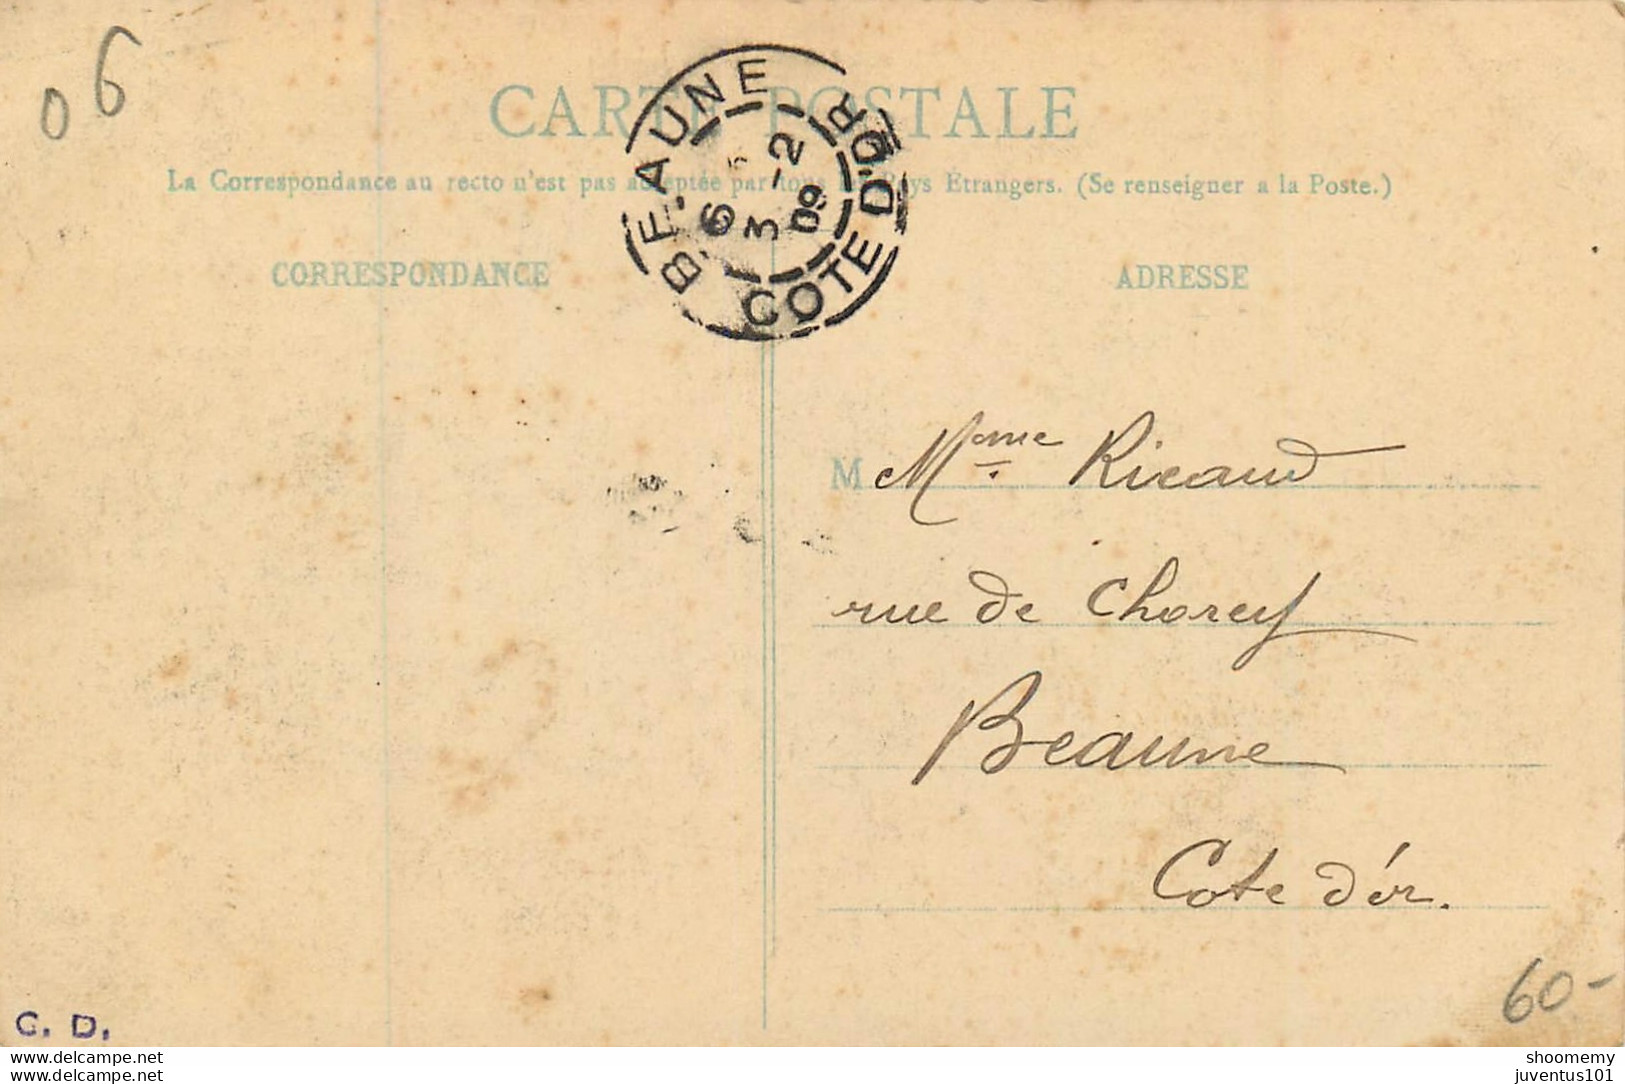 06
CARTE POSTALE
La Correspondance au recto n'est pas acceptée par tous les Pays Etrangers. (Se renseigner a la Poste.)
BEAUNE
6 - 2
3 09
COTE D'OR
CORRESPONDANCE
ADRESSE
M Mme Ricaud
rue de Chorey
Beaune
Cote d'or.
60-
C. D.
www.delcampe.net
www.delcampe.net
shoomemy
juventus101